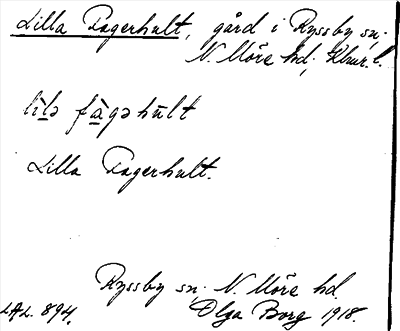 Lilla Fagerhult, gård i Ryssby sn.
N. Möre hd; Klmr. l.
lìlə fàgəhùlt
Lilla Fagerhult.
Ryssby sn. N. Möre hd.
LAL. 894. Olga Borg 1918.